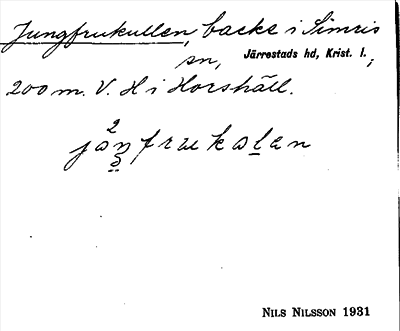 Jungfrukullen, backe i Simris
sn, Järrestads hd, Krist. l.;
200 m. V. H i Horshäll.
2
NILS NILSSON 1931